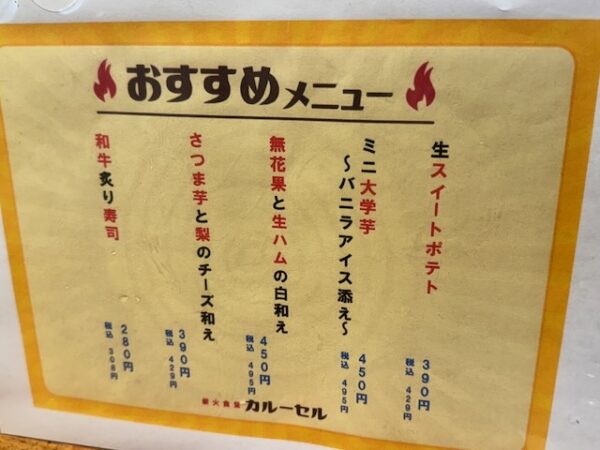 おすすめメニュー
生スイートポテト
390円
税込 429円
ミニ大学芋
〜バニラアイス添え〜
450円
税込 495円
無花果と生ハムの白和え
450円
税込 495円
さつま芋と梨のチーズ和え
390円
税込 429円
和牛炙り寿司
280円
税込 308円
火食堂 カルーセル